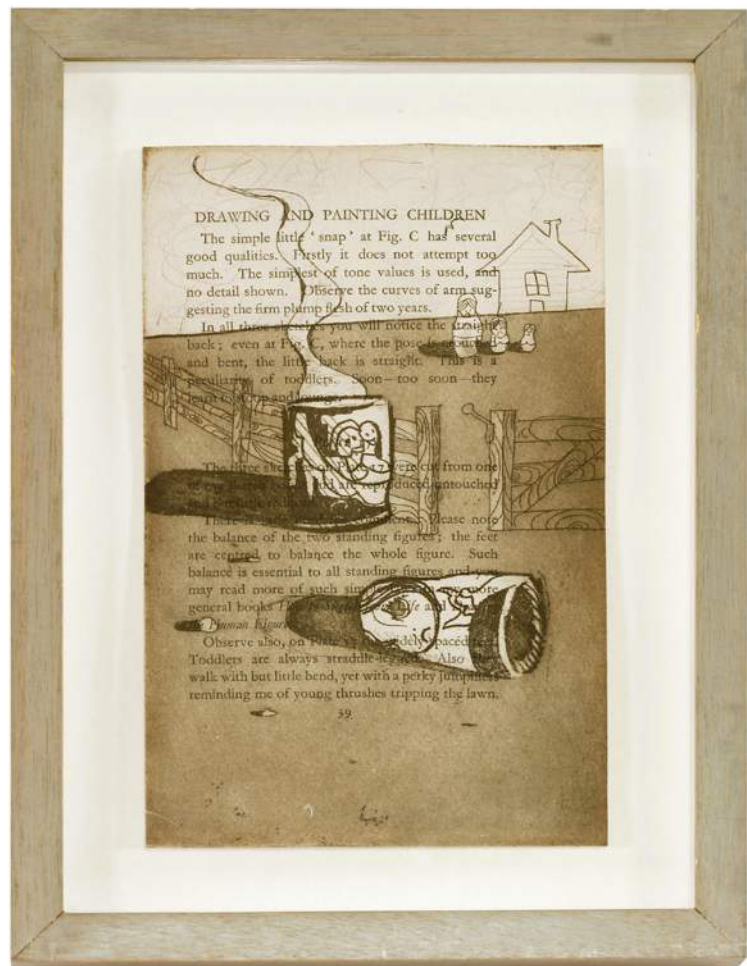 DRAWING AND PAINTING CHILDREN
The simple little ‘snap’ at Fig. C has several
good qualities. Firstly it does not attempt too
much. The simplest of tone values is used, and
no detail shown. Observe the curves of arm sug-
gesting the firm plump flesh of two years.
In all three sketches you will notice the straight
back; even at Fig. C, where the pose is
and bent, the little back is straight. This is a
peculiarity of toddlers. Soon—too soon—they
learn to and lounge.
The three sketches on Plate 17 were cut from one
of and are reproduced untouched
There Please note
the balance of the two standing figures; the feet
are centred to balance the whole figure. Such
balance is essential to all standing figures and you
may read more of such in more
general books Life and
Human Figure
Observe also, on Plate widely spaced
Toddlers are always straddle-legged. Also
walk with but little bend, yet with a perky jumpiness
reminding me of young thrushes tripping the lawn.
39